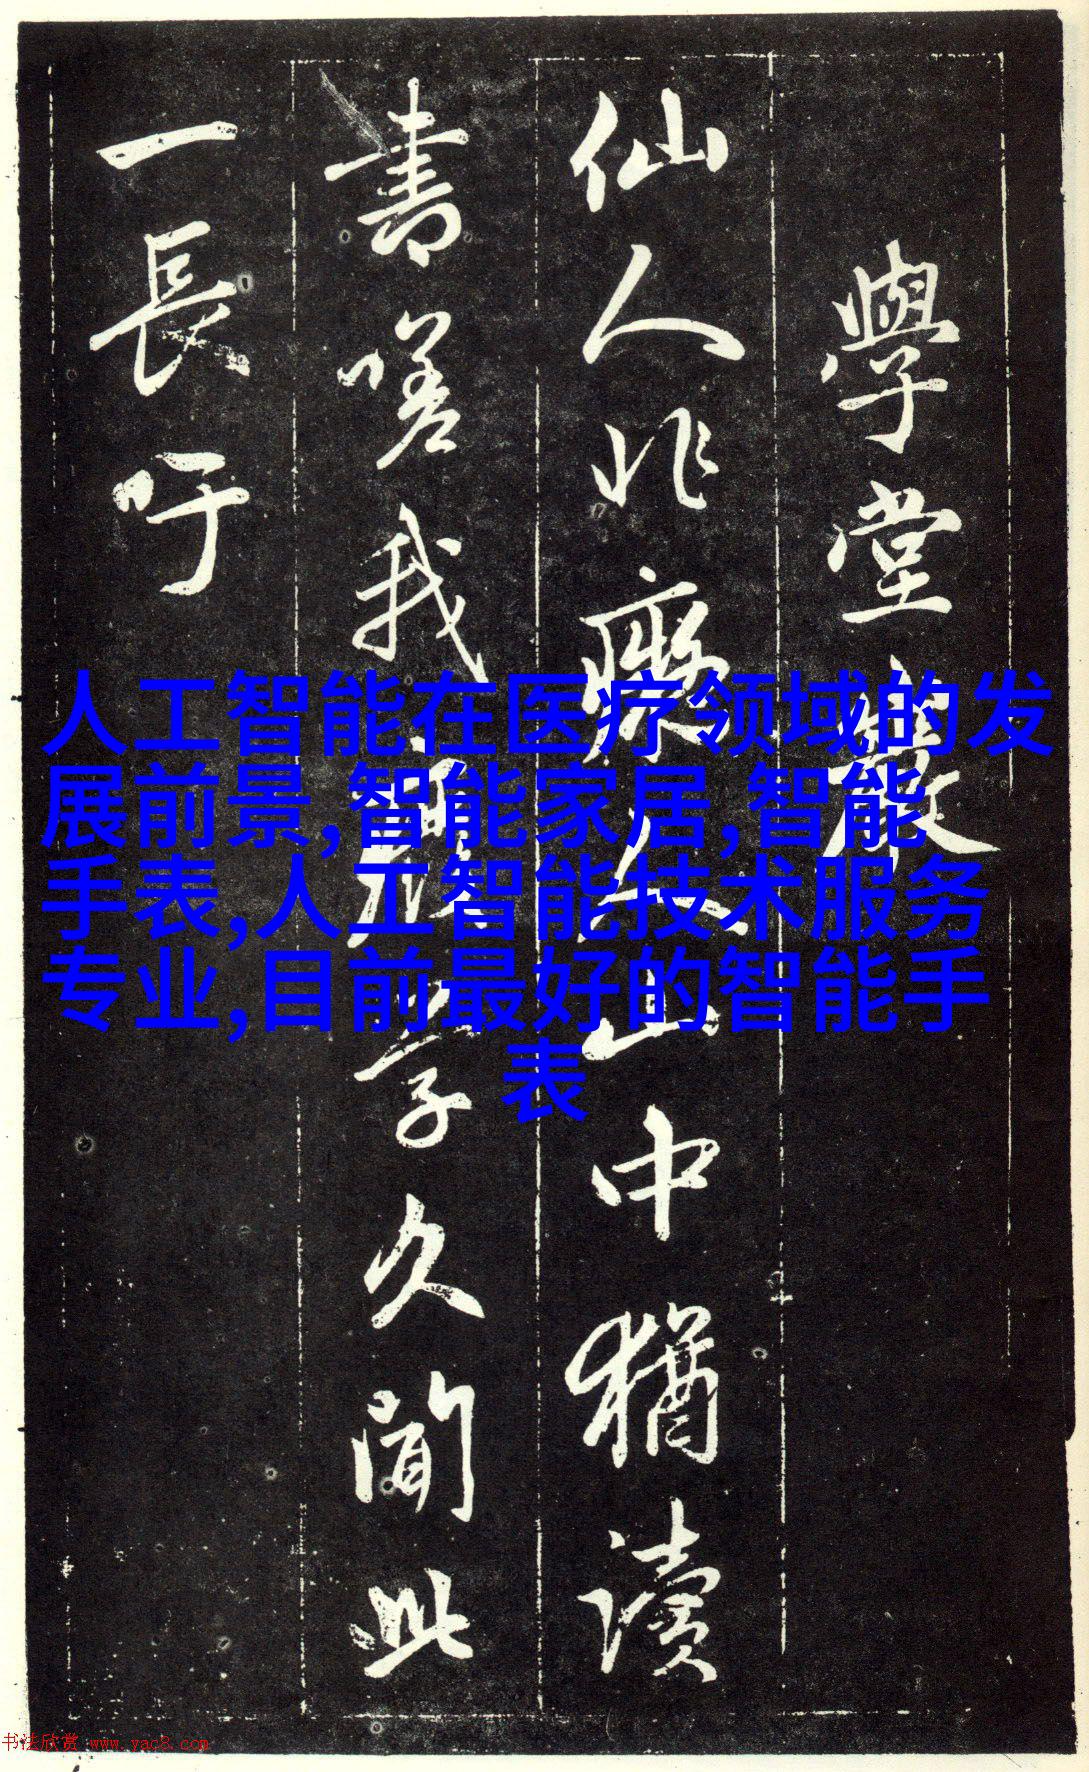 學堂巖
仙人非癡人山中猶讀
書嗟我廢學久聞此
一長吁
人工智能在医疗领域的发
展前景,智能家居,智能
手表,人工智能技术服务
专业,目前最好的智能手
表
书法欣赏 www.yac8.com